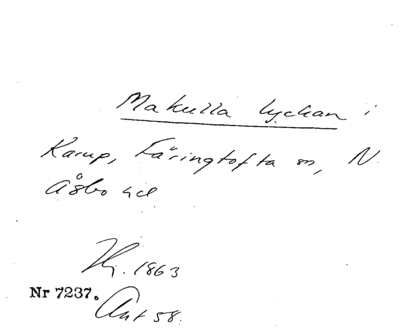 Makulla lyckan i
Karup, Färingtofta sn, N.
Åsbo hd
Hj. 1863
Nr 7237.
Ant 58.